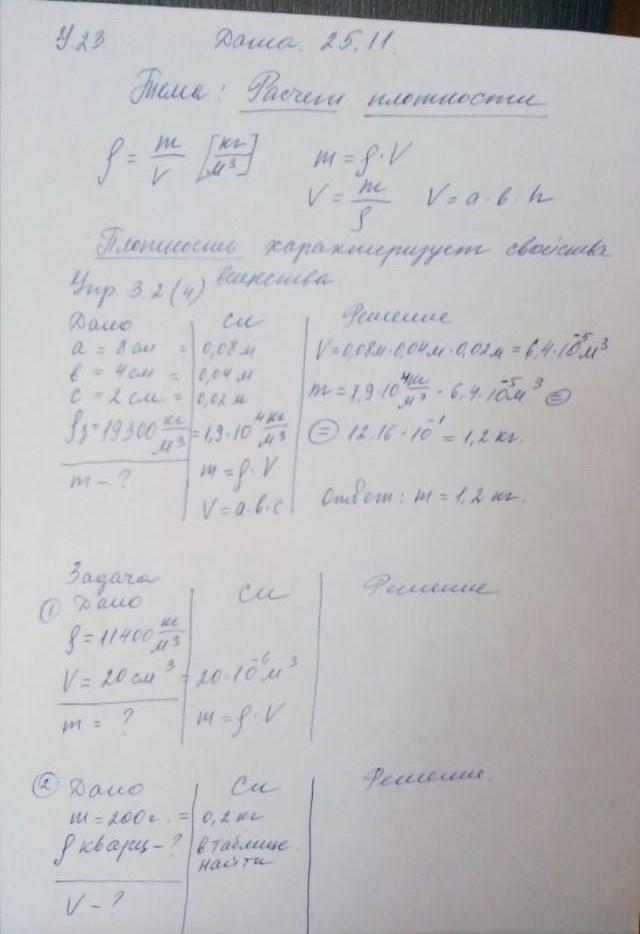 У.23 Дата. 25.11.
Тема: Расчет плотности
ρ = m/V [кг/м³] m = ρ·V
V = m/ρ V = a·в·h
Плотность характеризует свойства
вещества
Упр. 3.2(4)
Дано СИ Решение
a = 8см = 0,08м V=0,08м·0,04м·0,02м = 6,4·10⁻⁵м³
в = 4см = 0,04м
c = 2см = 0,02м m = 1,9·10⁴кг/м³ · 6,4·10⁻⁵м³ =
ρз=19300 кг/м³ = 1,9·10⁴кг/м³ = 12.16·10⁻¹ = 1,2 кг.
m – ? m = ρ·V
V = a·в·c ответ: m = 1,2 кг.
Задача
① Дано СИ Решение
ρ = 11400 кг/м³
V = 20см³ = 20·10⁻⁶м³
m = ? m = ρ·V
② Дано СИ Решение.
m = 200г. = 0,2 кг
ρ кварц – ? в таблице
найти
V – ?